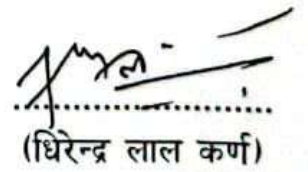 (धिरेन्द्र लाल कर्ण)